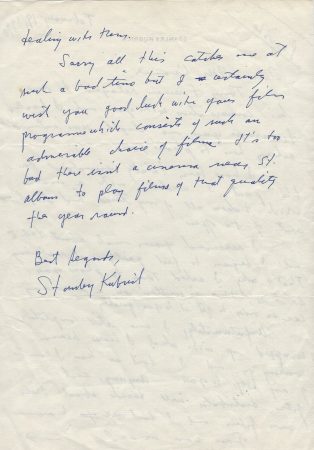 dealing with them.
Sorry all this catches me at
such a bad time but I certainly
wish you good luck with your film
programme which consists of such an
admirable choice of films. It's too
bad there isn't a cinema near St.
Albans to play films of that quality
the year round.
Best Regards,
Stanley Kubrick